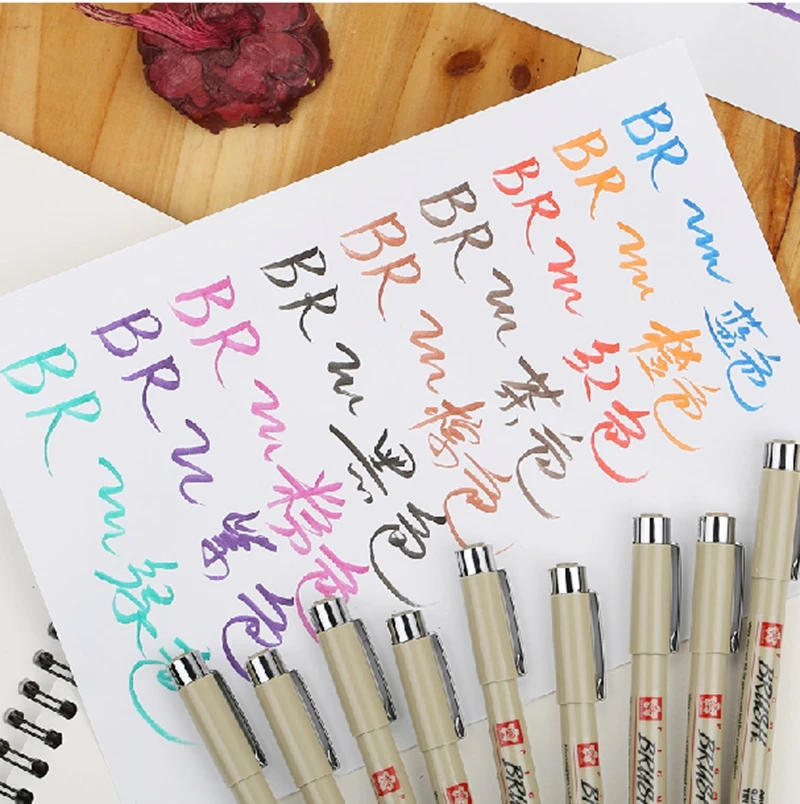 BR 绿色
BR 紫色
BR 粉色
BR 黑色
BR 棕色
BR 茶色
BR 红色
BR 橙色
BR 蓝色
BRUSH
BRUSH
BRUSH
BRUSH